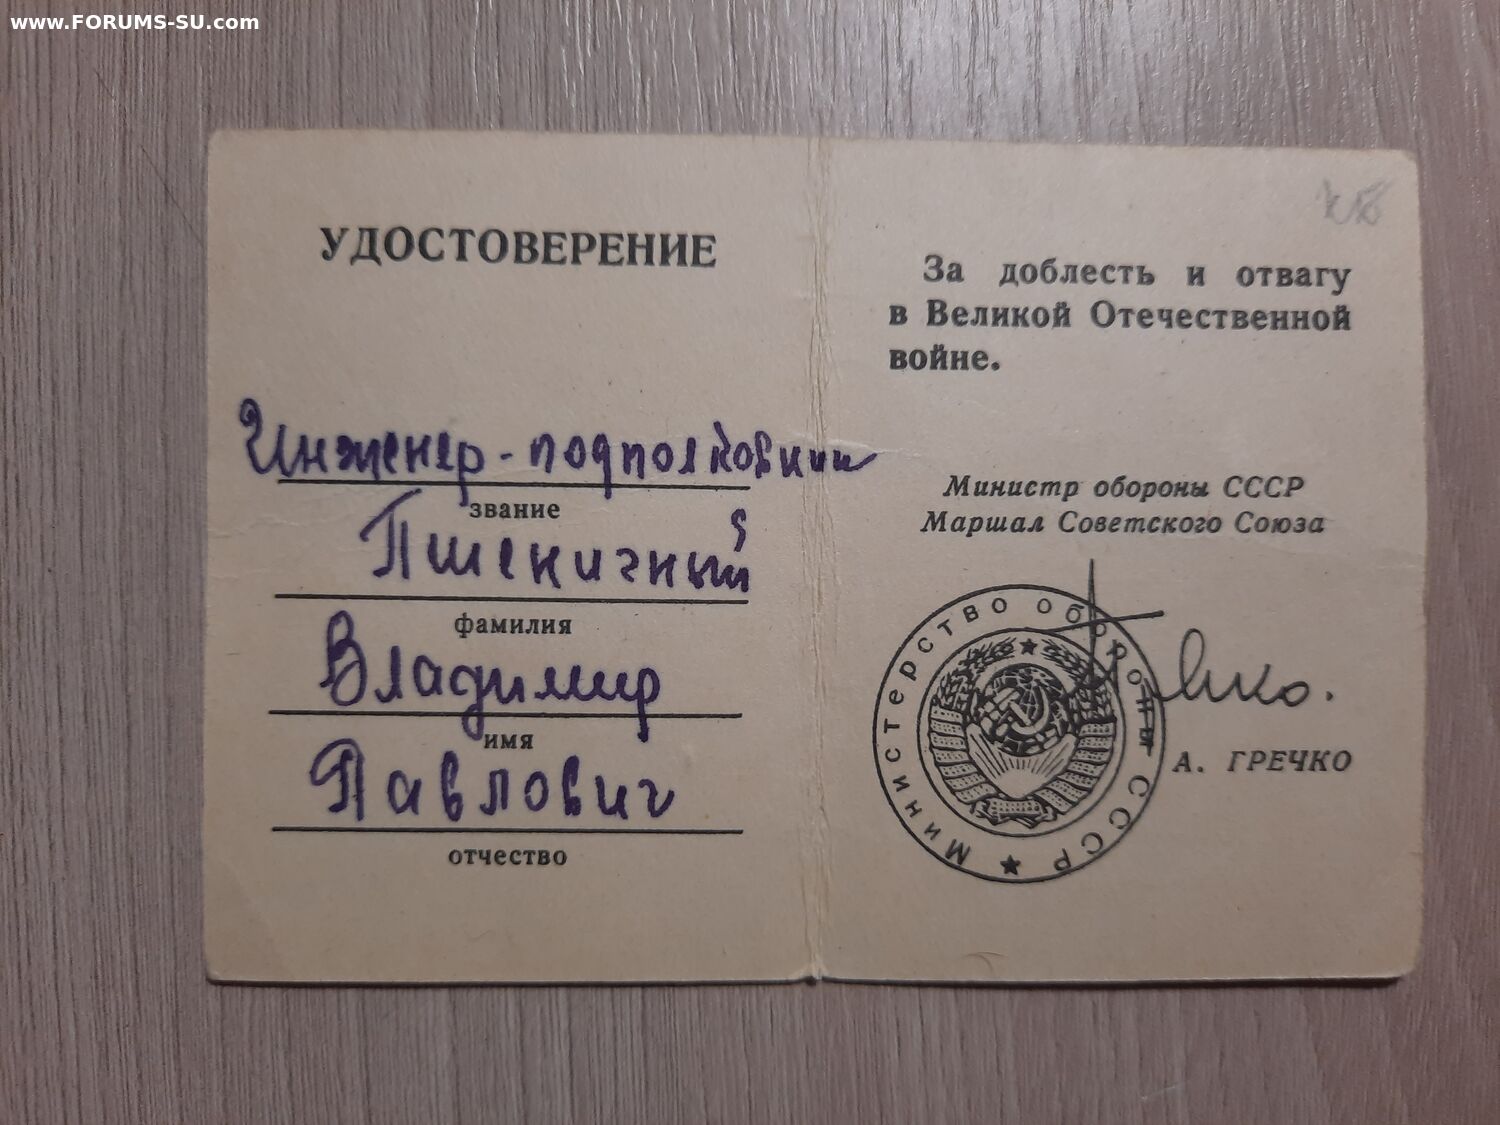 www.FORUMS-SU.com
УДОСТОВЕРЕНИЕ
Инженер-подполковник
звание
Пшеничный
фамилия
Владимир
имя
Павлович
отчество
За доблесть и отвагу
в Великой Отечественной
войне.
Министр обороны СССР
Маршал Советского Союза
Министерство обороны СССР
А. ГРЕЧКО